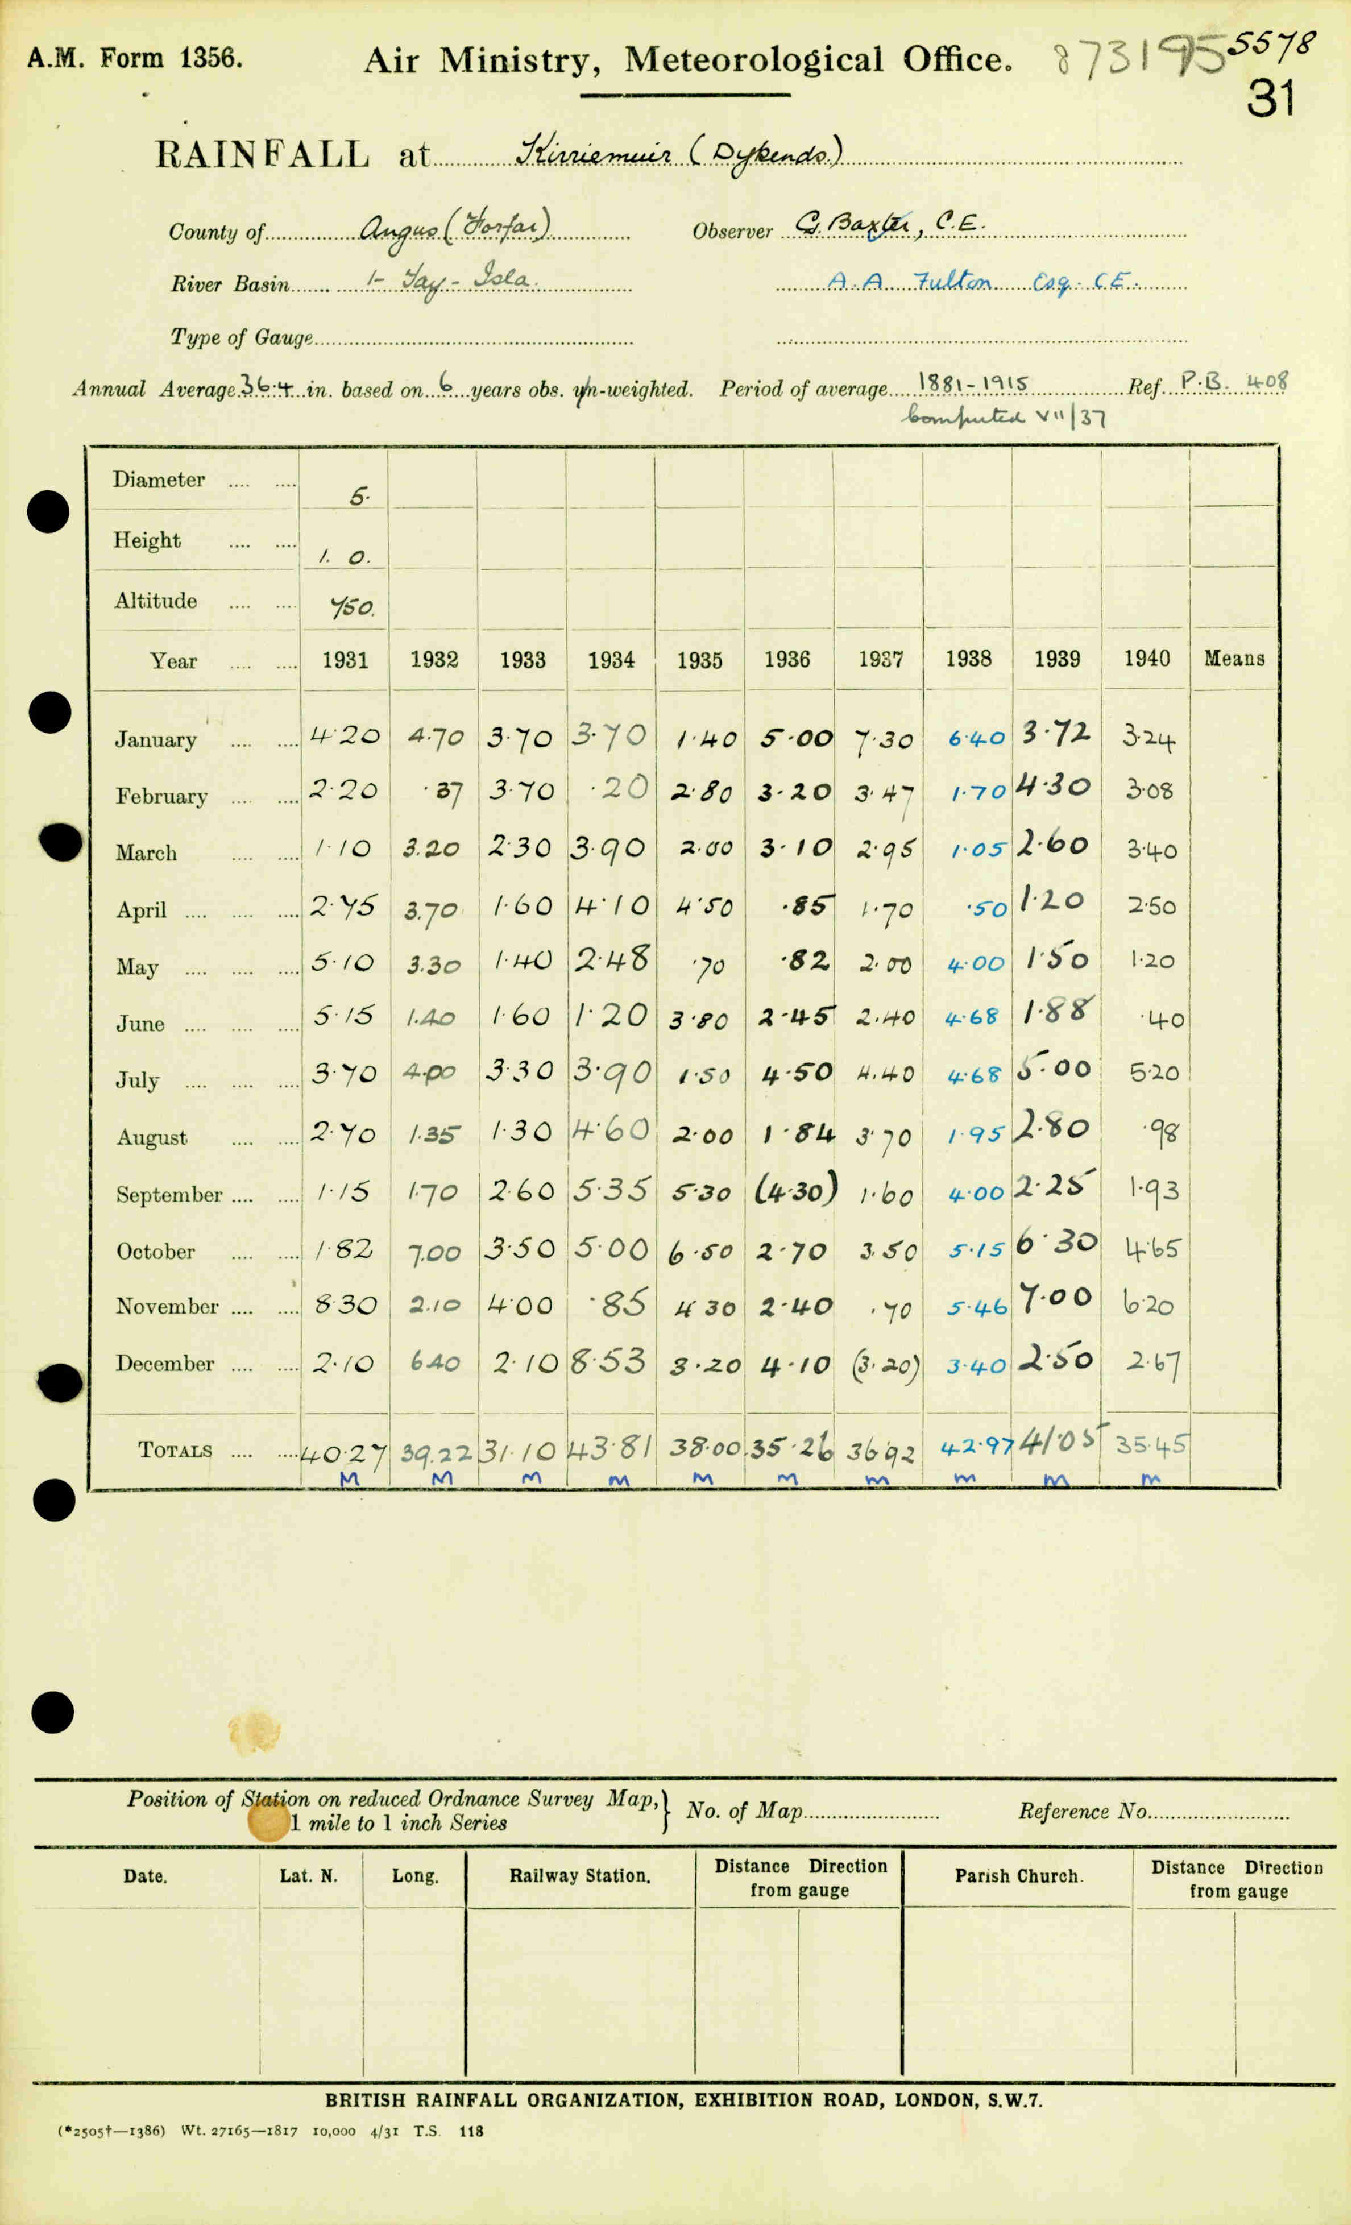 A.M. Form 1356. Air Ministry, Meteorological Office. 873195 5578
31
RAINFALL at Kirriemuir (Dykends.)
County of Angus (Forfar) Observer G. Baxter, C.E.
River Basin 1- Tay - Isla. A. A. Fulton Esq. C.E.
Type of Gauge
Annual Average 36.4 in. based on 6 years obs. un-weighted. Period of average 1881-1915 Ref. P.B. 408
Computed VII/37
Diameter 5.
Height 1. 0.
Altitude 750.
Year 1931 1932 1933 1934 1935 1936 1937 1938 1939 1940 Means
January 4·20 4·70 3·70 3·70 1·40 5·00 7·30 6·40 3·72 3·24
February 2·20 ·37 3·70 ·20 2·80 3·20 3·47 1·70 4·30 3·08
March 1·10 3.20 2·30 3·90 2·00 3·10 2·95 1·05 2·60 3·40
April 2·75 3.70 1·60 4·10 4·50 ·85 1·70 ·50 1·20 2·50
May 5·10 3.30 1·40 2·48 ·70 ·82 2·00 4·00 1·50 1·20
June 5·15 1.40 1·60 1·20 3·80 2·45 2·40 4·68 1·88 ·40
July 3·70 4.00 3·30 3·90 1·50 4·50 4.40 4·68 5·00 5·20
August 2·70 1.35 1·30 4·60 2·00 1·84 3·70 1·95 2·80 ·98
September 1·15 1·70 2·60 5·35 5·30 (4·30) 1·60 4·00 2·25 1·93
October 1·82 7.00 3·50 5·00 6·50 2·70 3.50 5·15 6·30 4·65
November 8·30 2.10 4·00 ·85 4·30 2·40 ·70 5·46 7·00 6·20
December 2·10 6.40 2·10 8·53 3·20 4·10 (3·20) 3·40 2·50 2·67
TOTALS 40·27 39.22 31·10 43·81 38·00 35·26 36·92 42·97 41·05 35·45
M M M M M M M M M M
Position of Station on reduced Ordnance Survey Map, 1 mile to 1 inch Series No. of Map Reference No.
Date. Lat. N. Long. Railway Station. Distance Direction from gauge Parish Church. Distance Direction from gauge
BRITISH RAINFALL ORGANIZATION, EXHIBITION ROAD, LONDON, S.W.7.
(*2505†—1386) Wt. 27165—1817 10,000 4/31 T.S. 118